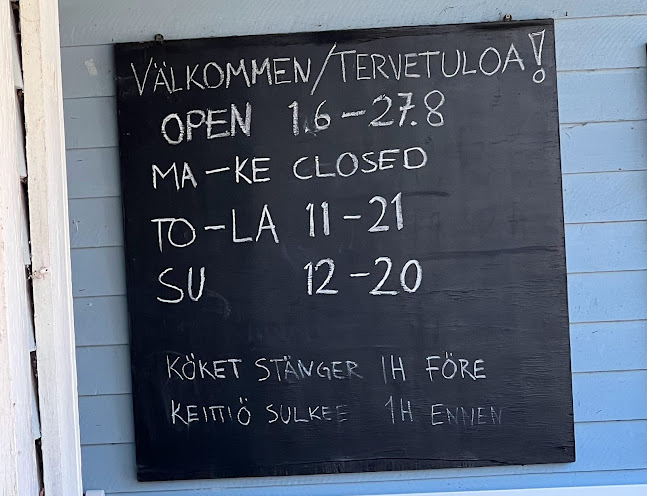 VÄLKOMMEN/TERVETULOA!
OPEN 1.6–27.8
MA–KE CLOSED
TO–LA 11–21
SU 12–20
KÖKET STÄNGER 1H FÖRE
KEITTIÖ SULKEE 1H ENNEN